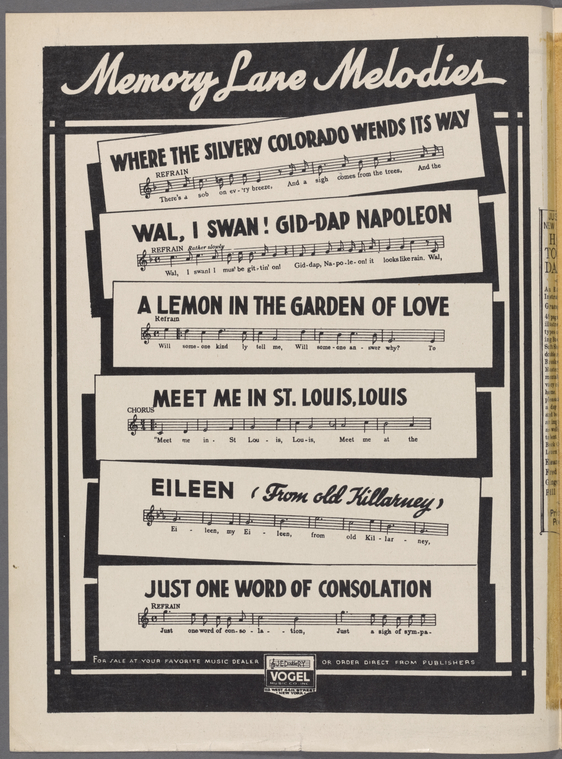 Memory Lane Melodies
WHERE THE SILVERY COLORADO WENDS ITS WAY
REFRAIN
There's a sob on ev-'ry breeze, And a sigh comes from the trees, And the
WAL, I SWAN! GID-DAP NAPOLEON
REFRAIN Rather slowly
Wal, I swan! I mus' be git-tin' on! Gid-dap, Na-po-le-on! it looks like rain. Wal,
A LEMON IN THE GARDEN OF LOVE
Refrain
Will some-one kind ly tell me, Will some-one an-swer why? To
MEET ME IN ST. LOUIS, LOUIS
CHORUS
"Meet me in - St Lou - is, Lou-is, Meet me at the
EILEEN (From old Killarney)
Ei - leen, my Ei - leen, from old Kil - lar - ney,
JUST ONE WORD OF CONSOLATION
REFRAIN
Just one word of con-so - la - tion, Just a sigh of sym-pa-
FOR SALE AT YOUR FAVORITE MUSIC DEALER OR ORDER DIRECT FROM PUBLISHERS
VOGEL
MUSIC CO. INC.
NEW YORK